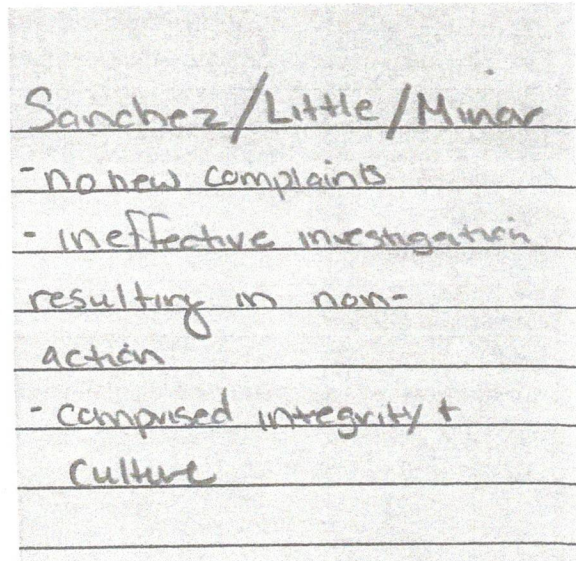 Sanchez/Little/Minor
- no new complaints
- ineffective investigation
resulting in non-
action
- comprised integrity +
culture